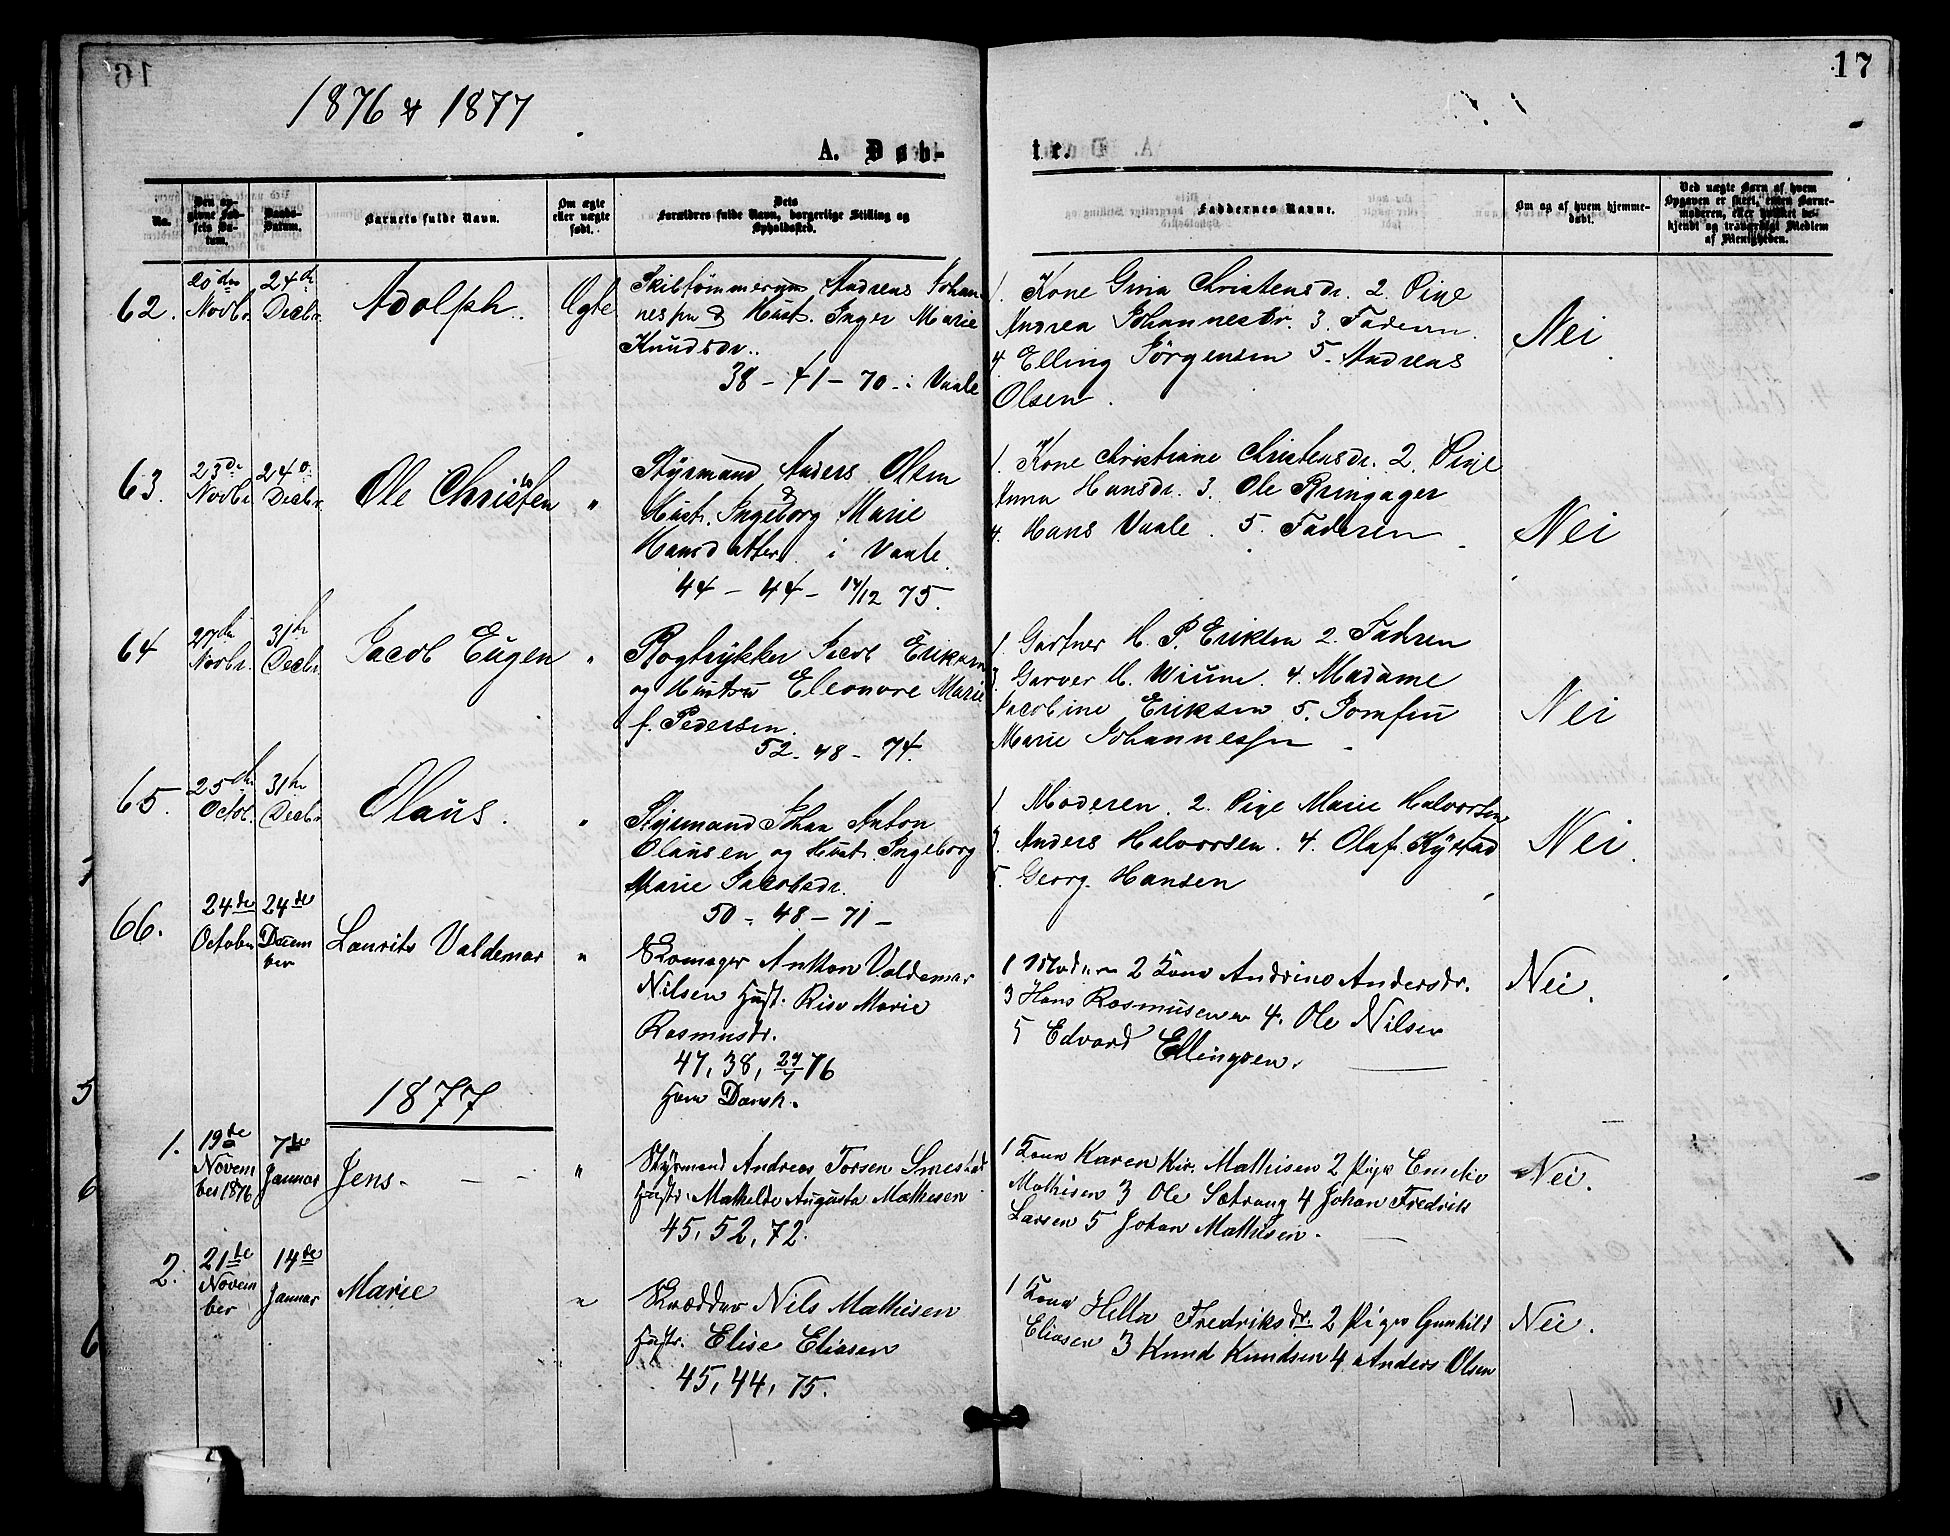 17
1876 & 1877
A. Døb-
te.
No.
Den op-
givne Fød-
sels Da-
tum.
Daabs-
Datum.
Barnets fulde Navn.
Om ægte
eller uægte
født.
Dets
Forældres fulde Navn, borgerlige Stilling og
Opholdssted.
Faddernes Navne.
Om og af hvem hjemme-
døbt.
Ved uægte Børn af hvem
Opgaven er skeet, enten Barne-
moderen, eller hvilket be-
kjendt og troværdigt Medlem
af Menigheden.
62.
Novbr.
24de
Decbr.
Adolph.
Ægte
Skibstømmermand Andreas Johan-
nessen & Hust. Inger Marie
Knudsdr.
38 - 41 - 70 - i Vaale
1. Kone Gina Christensdr. 2. Pige
Andrea Johannesdr. 3. Faderen.
4. Elling Jörgensen 5. Andreas
Olsen.
Nei
63.
23de
Novbr.
24de
Decbr.
Ole Christen
"
Styrmand Anders Olsen
&
Hust. Ingeborg Marie
Hansdatter i Vaale.
44 - 44 - 17/12 75.
1. Kone Christiane Christensdr. 2. Pige
Anna Hansdr. 3. Ole Ringager
4. Hans Vaale. 5. Faderen
Nei
64
27de
Novbr.
31te
Decbr.
Jacob Eugen
"
Bogtrykker Jacob Eriksen
og Hustru Eleonore Marie
f. Pedersen.
52 - 48 - 74.
1. Gartner H. P. Eriksen 2. Faderen
3. Garver H. Wium. 4. Madame
Jacobine Eriksen 5. Jomfru
Marie Johannessen
Nei
65.
25de
Octob.
31te
Decbr.
Olaus.
"
Styrmand Johan Anton
Olausen og Hust. Ingeborg
Marie Jacobsdr.
50 - 48 - 71 -
1. Moderen. 2. Pige Marie Halvorsen
3. Anders Halvorsen. 4. Olaf Kystad
5. Georg Hansen
Nei.
66.
24de
October
24de
Decem
ber
Laurits Valdemar
"
Skomager Anton Valdemar
Nilsen Hust. Rise Marie
Rasmusdr.
47, 38, 76
Ham Dansk.
1 Moderen 2 Kone Andrine Andersdr.
3 Hans Rasmussen 4. Ole Nilsen
5 Edvard Ellingsen.
Nei.
1877
1.
19de
Novem
ber 1876
7de
Januar
Jens.
"
Styrmand Andreas Torsen Smestad
Hustr. Mathilde Augusta Mathisen
45, 52, 72.
1 Kone Karen Kir. Mathisen 2 Pige Emelie
Mathisen 3 Ole Sætrang 4 Johan Fredrik
Larsen 5 Johan Mathisen.
Nei.
2.
21de
Novem
ber
14de
Januar
Marie
"
Skrædder Nils Mathisen
Hustr. Elise Eliasen
45, 44, 75.
1 Kone Hella Fredriksdr. 2 Pige Gunhild
Eliasen 3 Knud Knudsen 4 Anders Olsen
Nei.